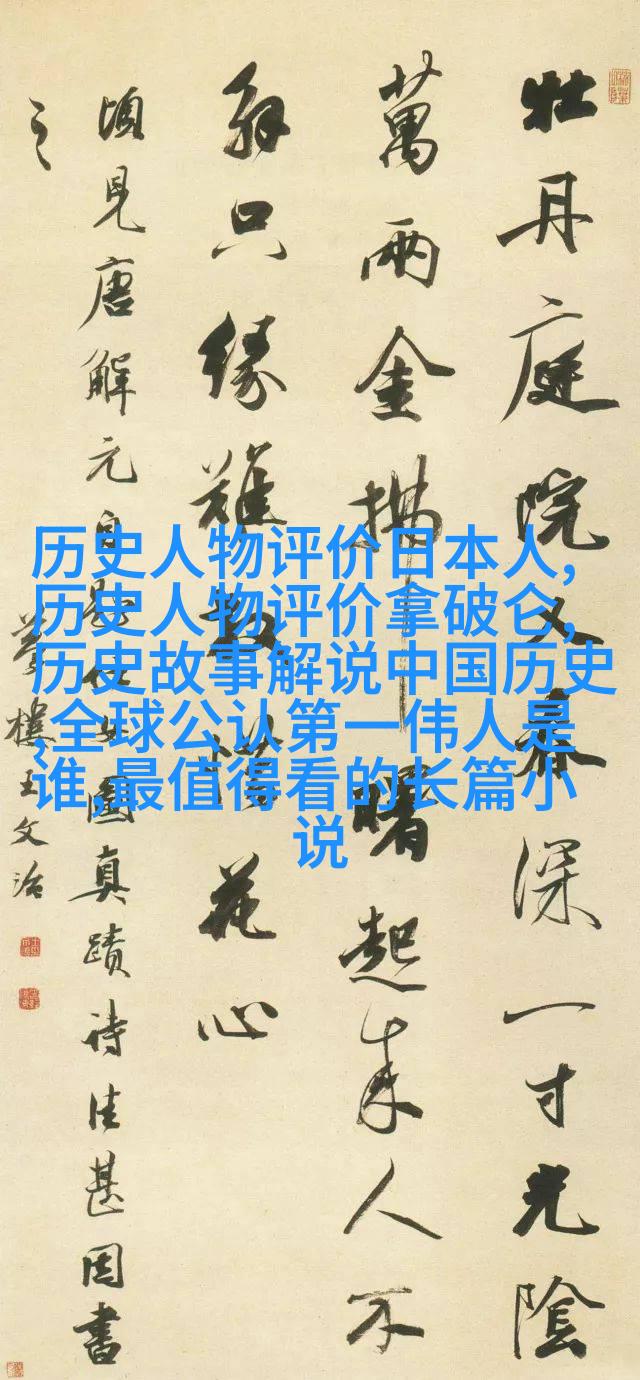 牡丹庭院又春深一寸光陰
萬兩金拂曙起來人不
解只緣難放惜花心
頃見唐解元自仕女圖真蹟詩佳甚因書
之
夢樓王文治
历史人物评价日本人,
历史人物评价拿破仑,
历史故事解说中国历史
,全球公认第一伟人是
谁,最值得看的长篇小
说